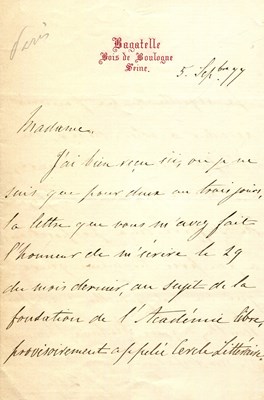 Paris
Bagatelle
Bois de Boulogne
Seine.
5. Sepbre 77
Madame,
J'ai bien reçu ici, où je ne
suis que pour deux ou trois jours,
la lettre que vous m'avez fait
l'honneur de m'écrire le 29
du mois dernier, au sujet de la
fondation de l'Académie libre,
provisoirement appelée Cercle Littéraire.